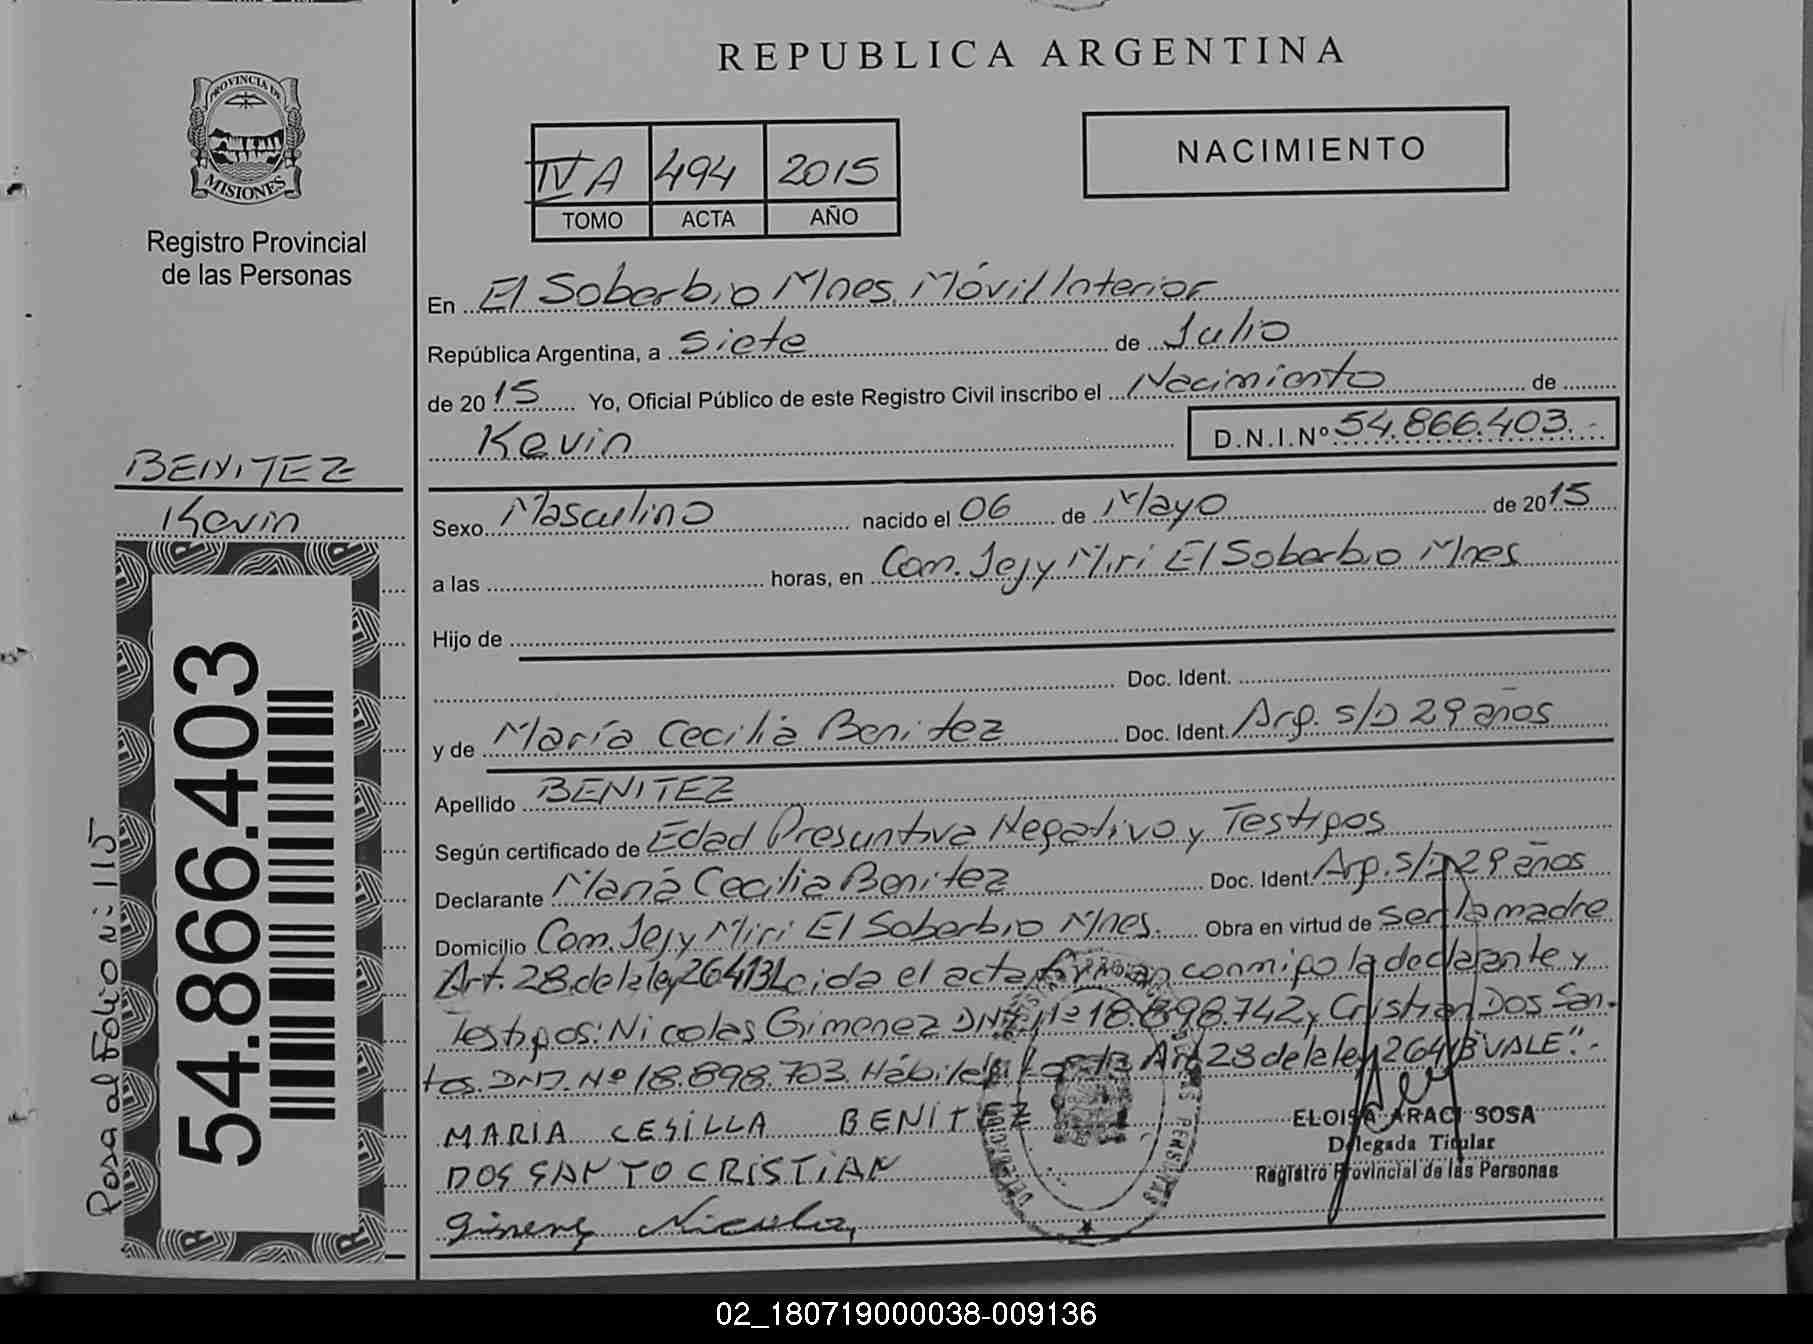 REPUBLICA ARGENTINA
PROVINCIA DE
MISIONES
Registro Provincial
de las Personas
IV A 494 2015
TOMO ACTA AÑO
NACIMIENTO
En El Soberbio Mnes Móvil Interior
República Argentina, a Siete de Julio
de 2015 Yo, Oficial Público de este Registro Civil inscribo el Nacimiento de
Kevin D.N.I.Nº 54.866.403.-
BENITEZ
Kevin
54.866.403
Pasa al Folio Nº 115
Sexo Masculino nacido el 06 de Mayo de 2015
a las horas, en Com. Jejy Miri El Soberbio Mnes
Hijo de
Doc. Ident.
y de María Cecilia Benitez Doc. Ident. Arg. S/D 29 años
Apellido BENITEZ
Según certificado de Edad Presuntiva Negativo y Testigos
Declarante María Cecilia Benitez Doc. Ident. Arg. S/D 29 años
Domicilio Com. Jejy Miri El Soberbio Mnes. Obra en virtud de ser la madre
Art. 28 de la ley 26413 Leida el acta firman conmigo la declarante y
Testigos: Nicolas Gimenez DNI Nº 18.898.742 y Cristian Dos San-
tos. DNI. Nº 18.898.703. Hábiles Art 28 de la ley 26413 "VALE".-
MARIA CESILLA BENITEZ
DOS SANTO CRISTIAN
Gimenez Nicolas
ELOISA ARACI SOSA
Delegada Titular
Registro Provincial de las Personas
02_180719000038-009136